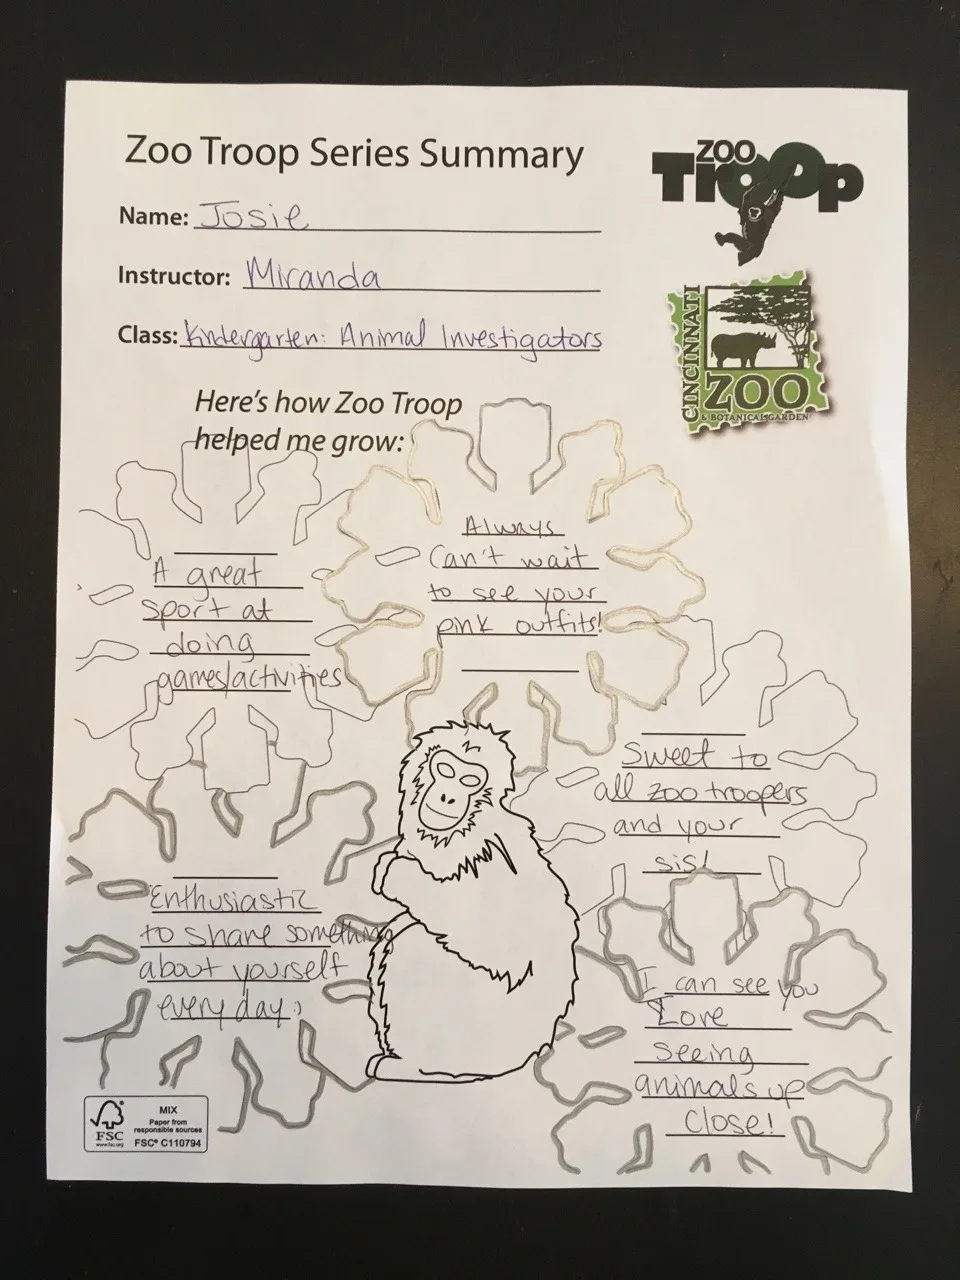 Zoo Troop Series Summary
ZOO
Troop
Name: Josie
Instructor: Miranda
Class: Kindergarten: Animal Investigators
CINCINNATI
ZOO
& BOTANICAL GARDEN
Here's how Zoo Troop
helped me grow:
A great
sport at
doing
games/activities
Always
Can't wait
to see your
pink outfits!
Sweet to
all zoo troopers
and your
sis!
Enthusiastic
to share something
about yourself
every day :)
I can see you
Love
seeing
animals up
Close!
FSC
www.fsc.org
MIX
Paper from
responsible sources
FSC® C110794